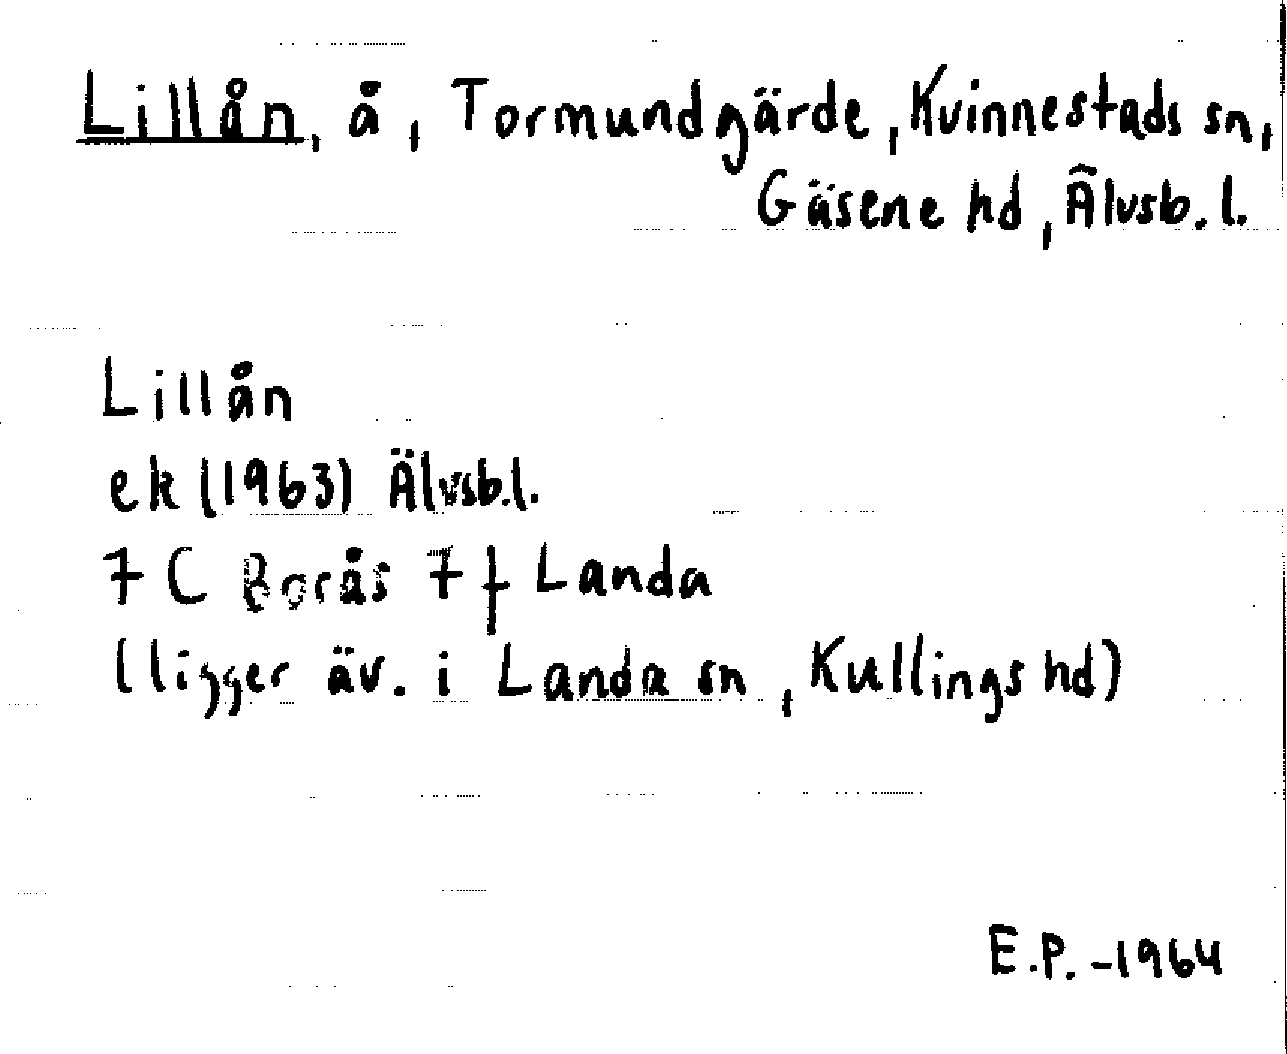 Lillån, å, Tormundgärde, Kvinnestads sn,
Gäsene hd, Älvsb. l.
Lillån
ek (1963) Älvsb.l.
7 C Borås 7 f Landa
(ligger äv. i Landa sn, Kullings hd)
E.P. -1964